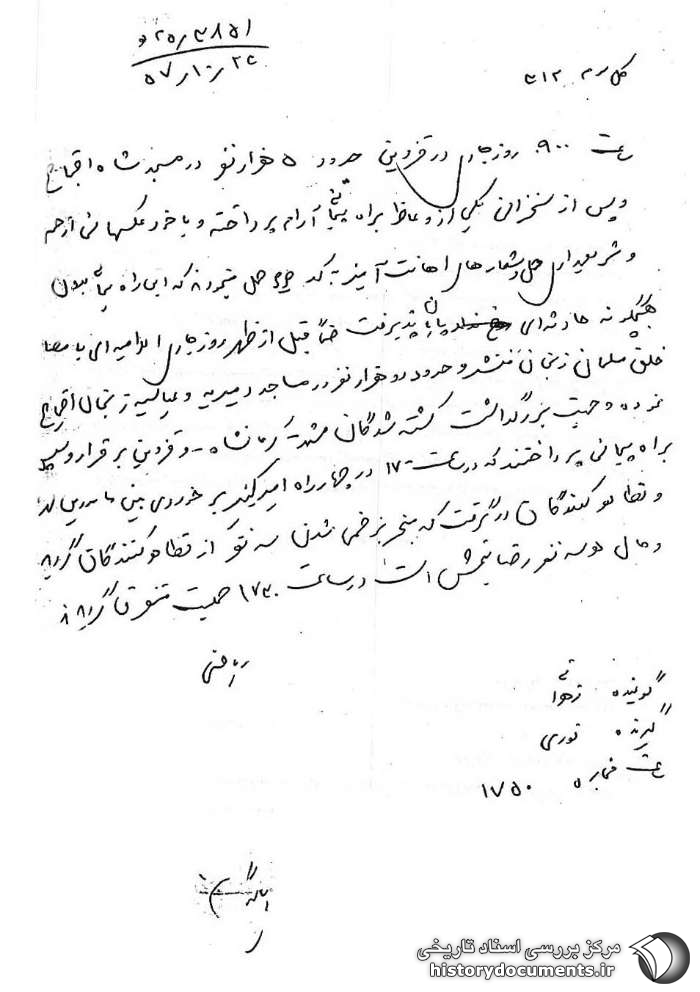 ۲۵۰ر۳۸۵۱
۲۴ر۱۰ر۵۷
ساعت ۹۰۰. روز جاری در قزوین حدود ۵ هزار نفر در مسجد شاه اجتماع
و پس از سخنرانی یکی از وعاظ براه پیمائی آرام پرداخته و با خود عکسهائی از خم
و شریعتمداری حمل و شعارهای اهانت آمیز به که حمل مینمودند که این راه پیمائی بدون
هیچگونه حادثه‌ای پایان پذیرفت ضمناً قبل از ظهر روز جاری اعلامیه‌ای با امضا
خلق مسلمان زنجان منتشر و حدود دو هزار نفر در مساجد و عباسیه زنجان اجتماع
نموده و جهت بزرگداشت کشته شدگان مشهد - کرمانشاه - و قزوین برقرار و سپس
براه پیمائی پرداختند که در ساعت ۱۷۰۰ در چهارراه امیرکبیر برخوردی بین مامورین
و تظاهرکنندگان درگرفت که منجر بزخمی شدن سه نفر از تظاهرکنندگان گردید
و حال هر سه نفر رضایتبخش است در ساعت ۱۷۳۰ جمعیت متفرق گردید
گوینده
گیرنده نوری
ساعت مخابره ۱۷۵۰
مرکز بررسی اسناد تاریخی
historydocuments.ir